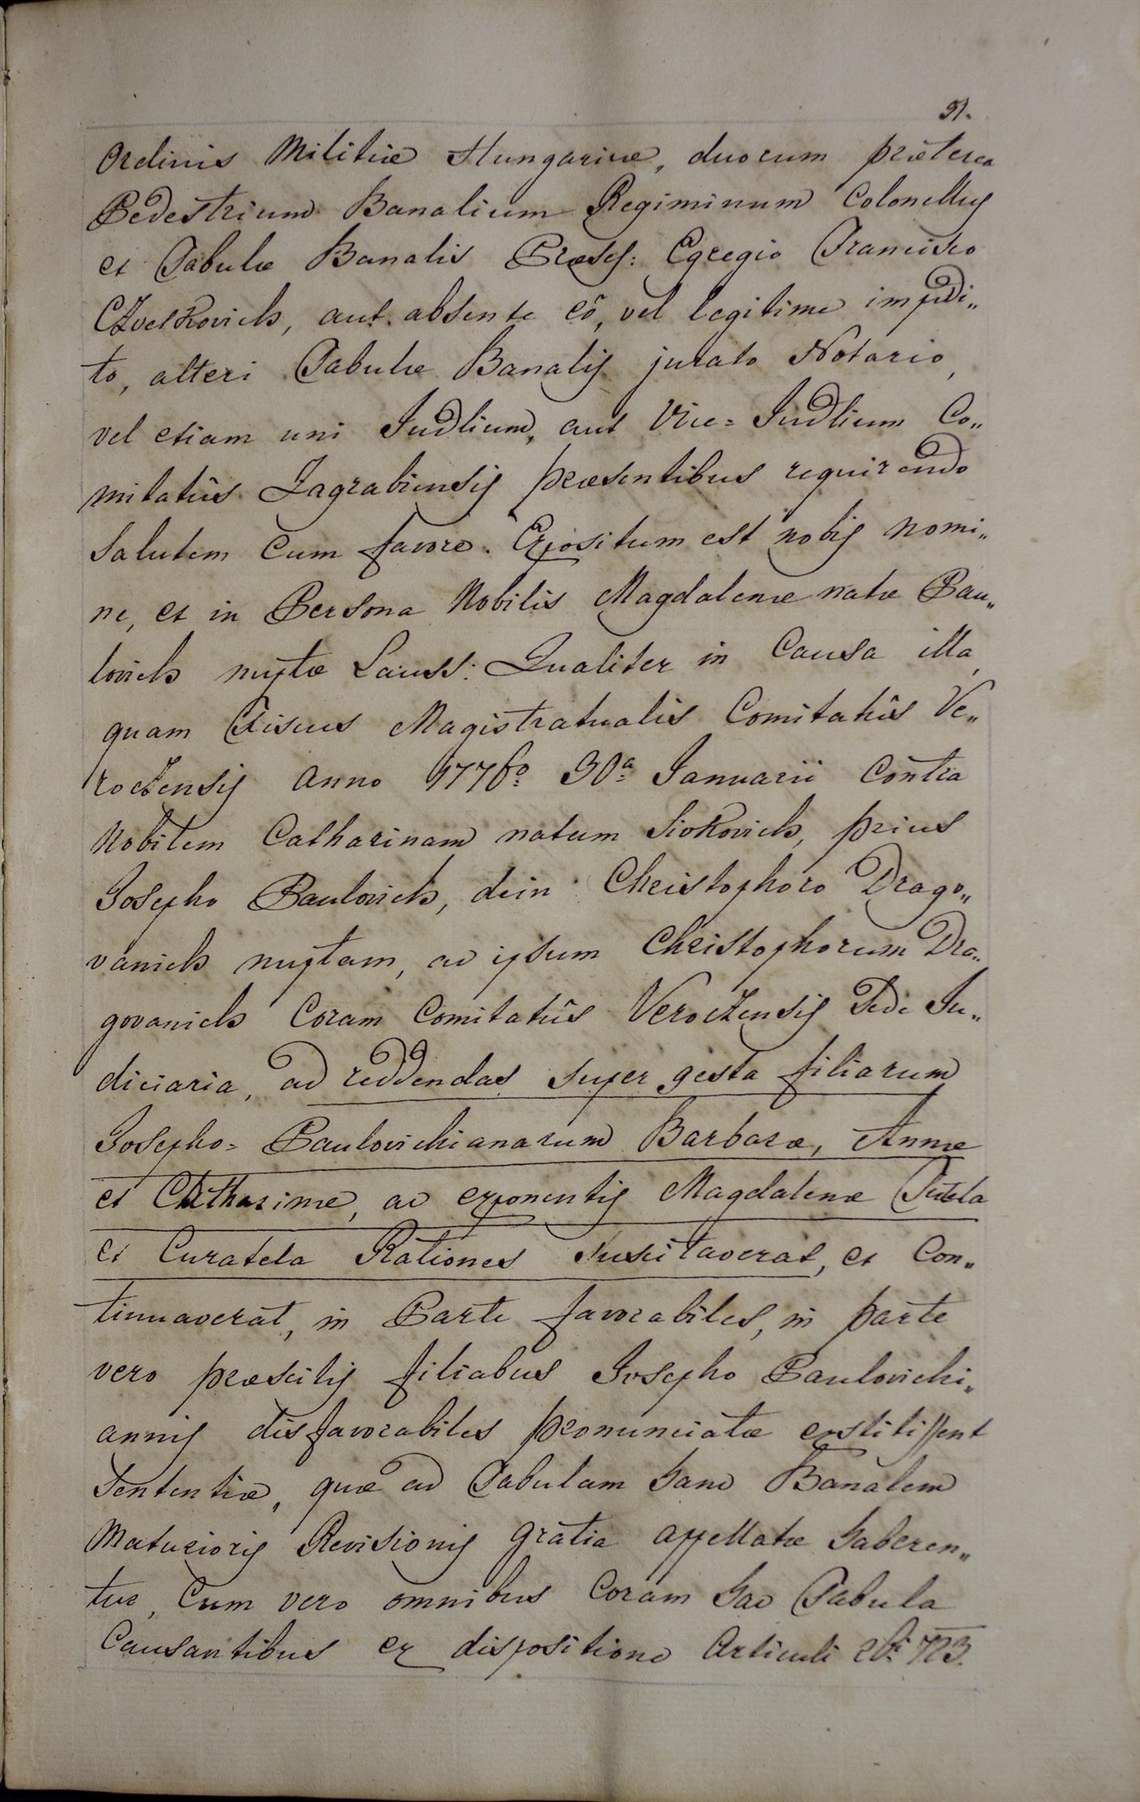 91.
Ordinis Militiæ Hungaricæ, duorum præterea
Pedestrium Banalium Regiminum Colonellus
et Tabulæ Banalis Præses: Egregio Francisco
CZvetkovich, aut absente eô, vel legitime impedi„
to, alteri Tabulæ Banalis jurato Notario,
vel etiam uni Judlium, aut Vice= Judlium Co„
mitatûs Zagrabiensis præsentibus requirendo
Salutem Cum favore. Expositum est nobis nomi„
ne, et in Persona Nobilis Magdalenæ natæ Pau„
lovich nuptæ Lauss: Qualiter in Causa illa,
quam Fiscus Magistratualis Comitatûs Ve„
rőczensis anno 1776o 30a Januarii contra
Nobilem Catharinam natam Siokovich, prius
Josepho Paulovich, dein Christophoro Drago„
vanich nuptam, ac ipsum Christophorum Dra„
govanich Coram Comitatûs Verőczensis Sede Ju„
diciaria, ad reddendas super gesta filiarum
Josepho= Paulovichianarum Barbaræ, Annæ
et Catharinæ, ac exponentis Magdalenæ Tutela
et Curatela Rationes suscitaverat, et Con„
tinuaverat, in Parte favorabiles, in parte
vero præscitis filiabus Josepho Paulovichi„
annis disfavorabiles pronunciatæ extitissent
Sententiæ, quæ ad Tabulam hanc Banalem
Maturioris Revisionis gratia appellatæ haberen„
tur, Cum vero omnibus Coram hac Tabula
Causantibus ex dispositione Articuli 26i 723.